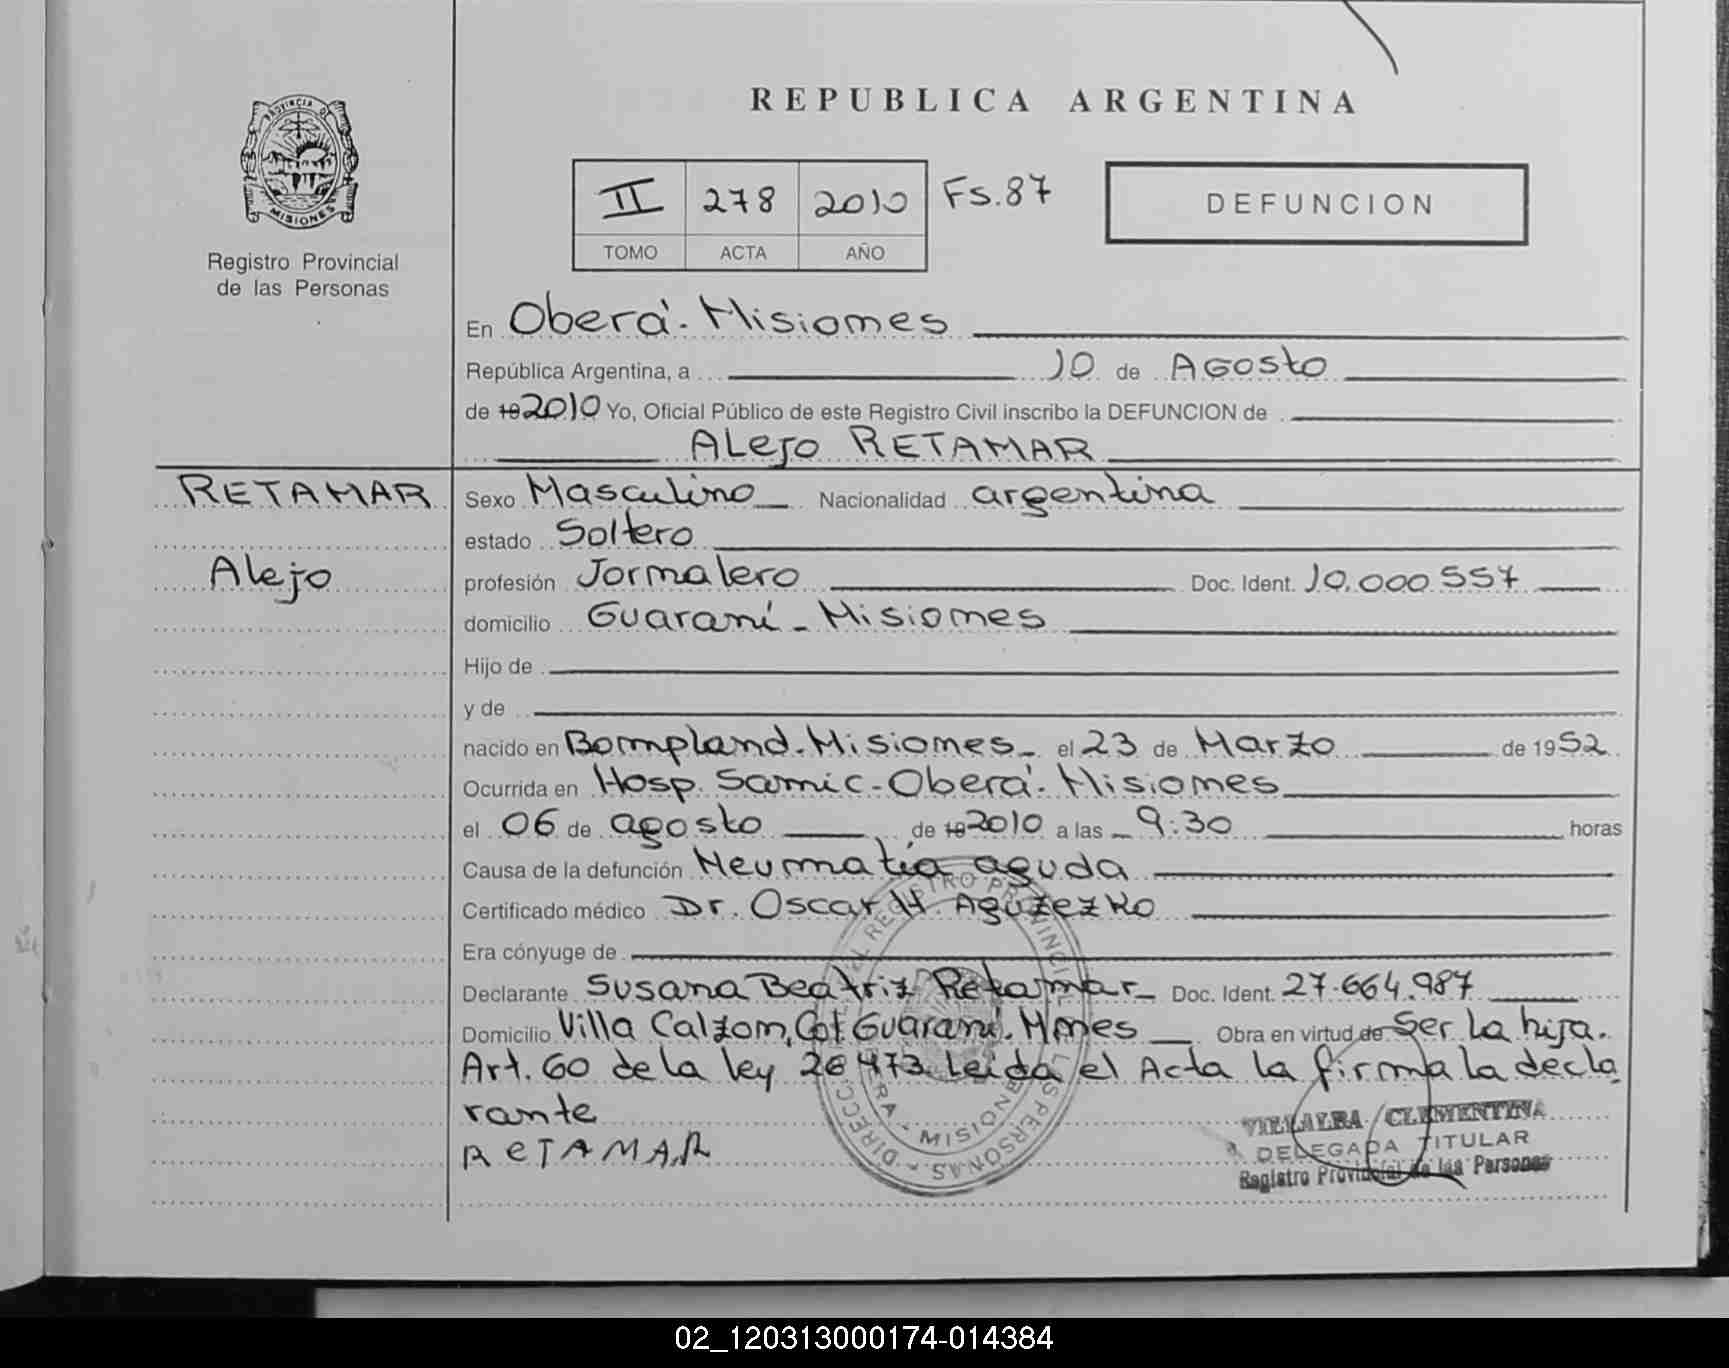 REPUBLICA ARGENTINA
PROVINCIA DE
MISIONES
Registro Provincial
de las Personas
II 278 2010 Fs.87
TOMO ACTA AÑO
DEFUNCION
En Oberá - Misiones
República Argentina, a 10 de Agosto
de 19 2010 Yo, Oficial Público de este Registro Civil inscribo la DEFUNCION de
Alejo RETAMAR
RETAMAR
Alejo
Sexo Masculino Nacionalidad argentina
estado Soltero
profesión Jornalero Doc. Ident. 10.000 557
domicilio Guaraní - Misiones
Hijo de
y de
nacido en Bompland - Misiones - el 23 de Marzo de 1952
Ocurrida en Hosp. Samic - Oberá - Misiones
el 06 de agosto de 19 2010 a las 9:30 horas
Causa de la defunción Neumatía aguda
Certificado médico Dr. Oscar H. Aguzezko
Era cónyuge de
Declarante Susana Beatriz Retamar - Doc. Ident. 27.664.987
Domicilio Villa Calzon, Col. Guaraní - Mnes Obra en virtud de Ser la hija.
Art. 60 de la ley 26473 Leida el Acta la firma la decla
rante
RETAMAR
VILLALBA CLEMENTINA
DELEGADA TITULAR
Registro Provincial de las Personas
02_120313000174-014384